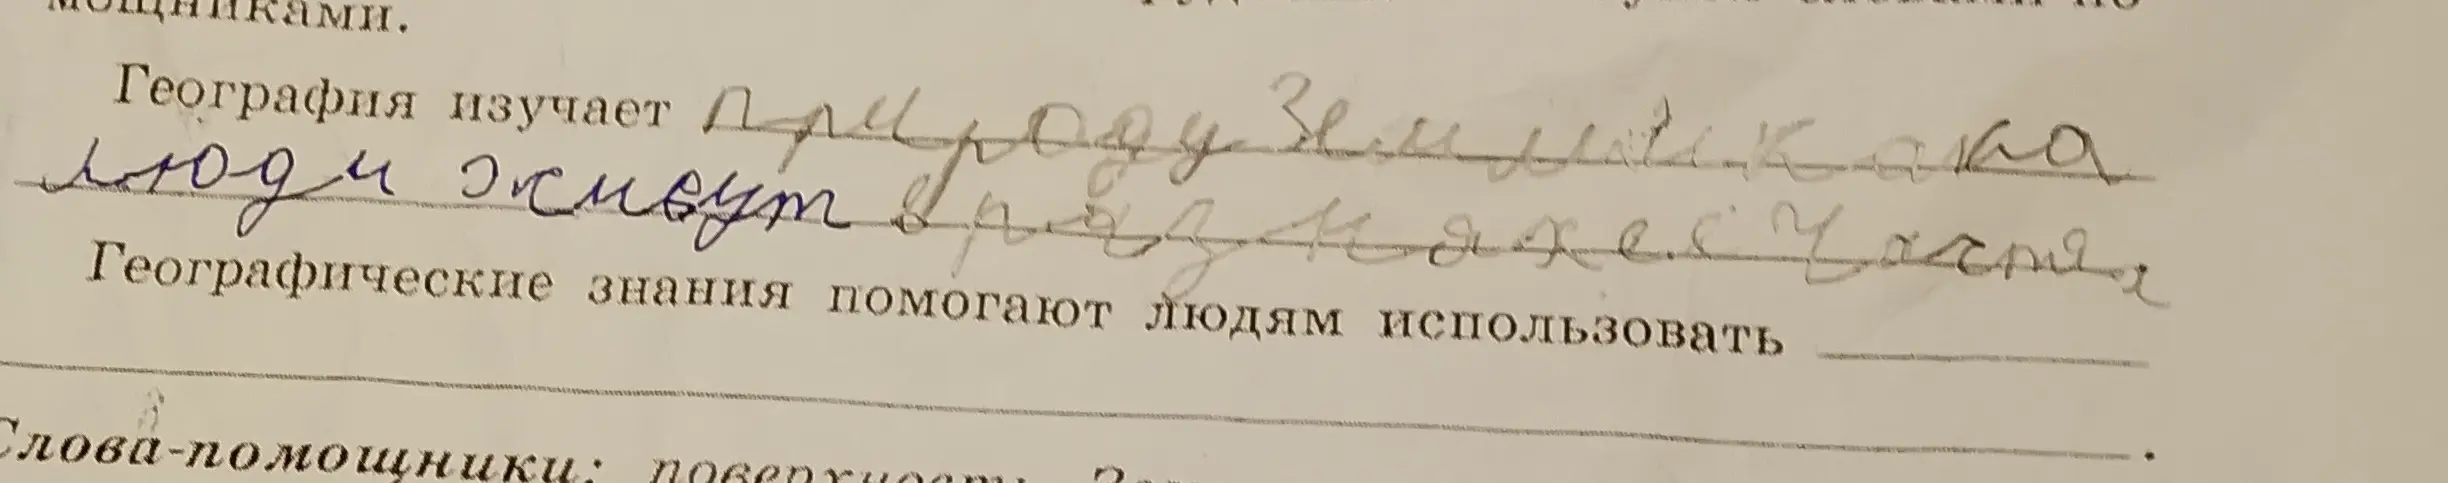 мощниками.
География изучает природу Земли как
люди живут в разных её частях
Географические знания помогают людям использовать
.
Слова-помощники: поверхность